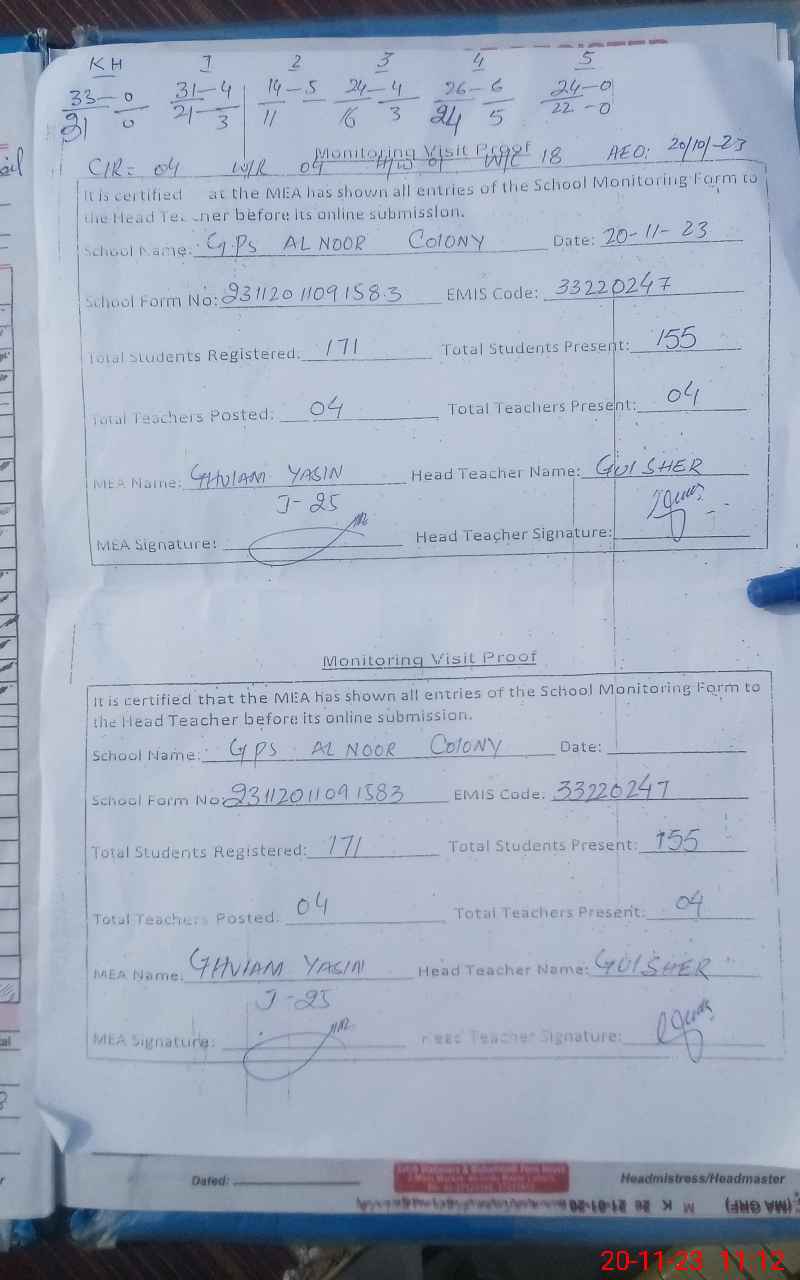 KH 1 2 3 4 5
33-0 31-4 14-5 24-4 26-6 24-0
31 0 21-3 11 16 3 24 5 22-0
CIR= 04 W/R 04 H/W 01 W/C 18 AEO: 20/10/-23
Monitoring Visit Proof
It is certified at the MEA has shown all entries of the School Monitoring Form to
the Head Teacher before its online submission.
School Name: GPS AL NOOR COLONY Date: 20-11-23
School Form No: 23112011091583 EMIS Code: 33220247
Total Students Registered: 171 Total Students Present: 155
Total Teachers Posted: 04 Total Teachers Present: 04
MEA Name: GHULAM YASIN Head Teacher Name: GULSHER
J-25
MEA Signature: Head Teacher Signature:
Monitoring Visit Proof
It is certified that the MEA has shown all entries of the School Monitoring Form to
the Head Teacher before its online submission.
School Name: GPS AL NOOR COLONY Date:
School Form No: 23112011091583 EMIS Code: 33220247
Total Students Registered: 171 Total Students Present: 155
Total Teachers Posted: 04 Total Teachers Present: 04
MEA Name: GHULAM YASIN Head Teacher Name: GULSHER
J-25
MEA Signature: Head Teacher Signature:
Dated: Headmistress/Headmaster
20-11-23 11:12